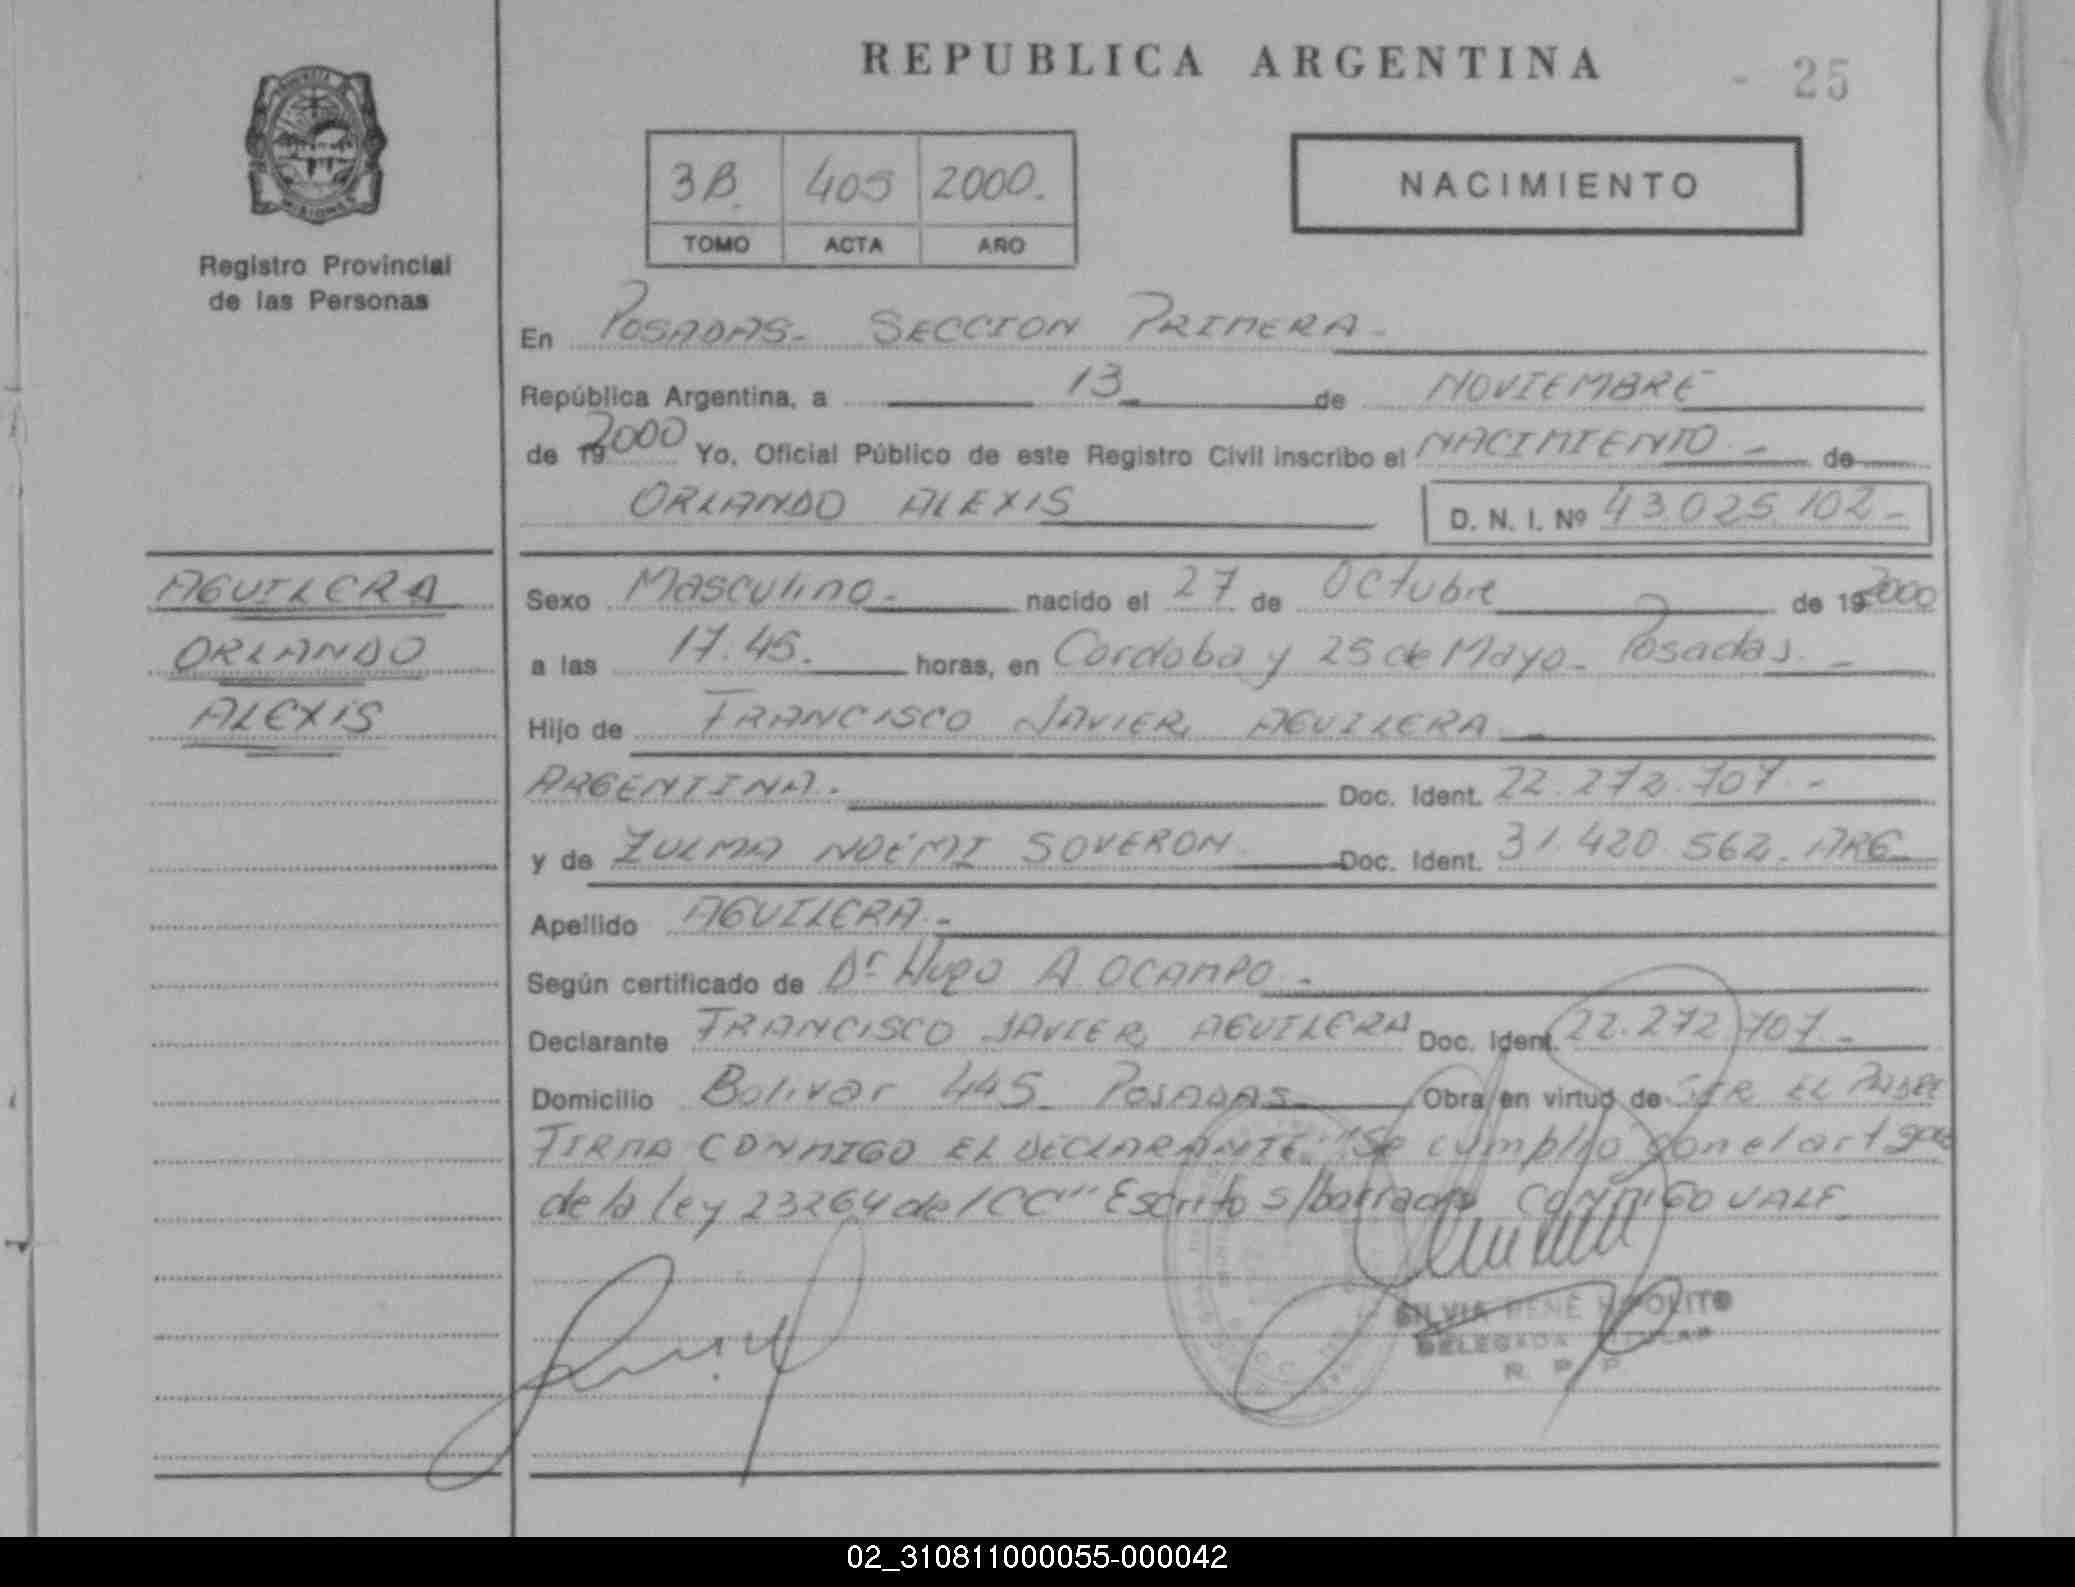 REPUBLICA ARGENTINA
- 25
3B. 405 2000.
TOMO ACTA AÑO
NACIMIENTO
PROVINCIA
MISIONES
Registro Provincial
de las Personas
En POSADAS- SECCION PRIMERA-
República Argentina, a 13 de NOVIEMBRE
de 192000 Yo, Oficial Público de este Registro Civil inscribo el NACIMIENTO - de
ORLANDO ALEXIS D. N. I. Nº 43.025.102-
AGUILERA
ORLANDO
ALEXIS
Sexo Masculino- nacido el 27 de Octubre de 192000
a las 17.45. horas, en Cordoba y 25 de Mayo- Posadas. -
Hijo de FRANCISCO JAVIER AGUILERA
ARGENTINA. Doc. Ident. 22.272.707.-
y de ZULMA NOEMI SOVERON Doc. Ident. 31.420.562. ARG.
Apellido AGUILERA.-
Según certificado de Dr Hugo A OCAMPO.-
Declarante FRANCISCO JAVIER AGUILERA Doc. Ident. 22.272.707.-
Domicilio Bolivar 445- POSADAS Obra en virtud de SER EL PADRE
FIRMA CONMIGO EL DECLARANTE "Se cumplio con el art
de la ley 23264 del CC" Escrito s/borrado CONMIGO VALE
SILVIA RENÉ HIPOLITO
DELEGADA TITULAR
R. P. P.
02_310811000055-000042